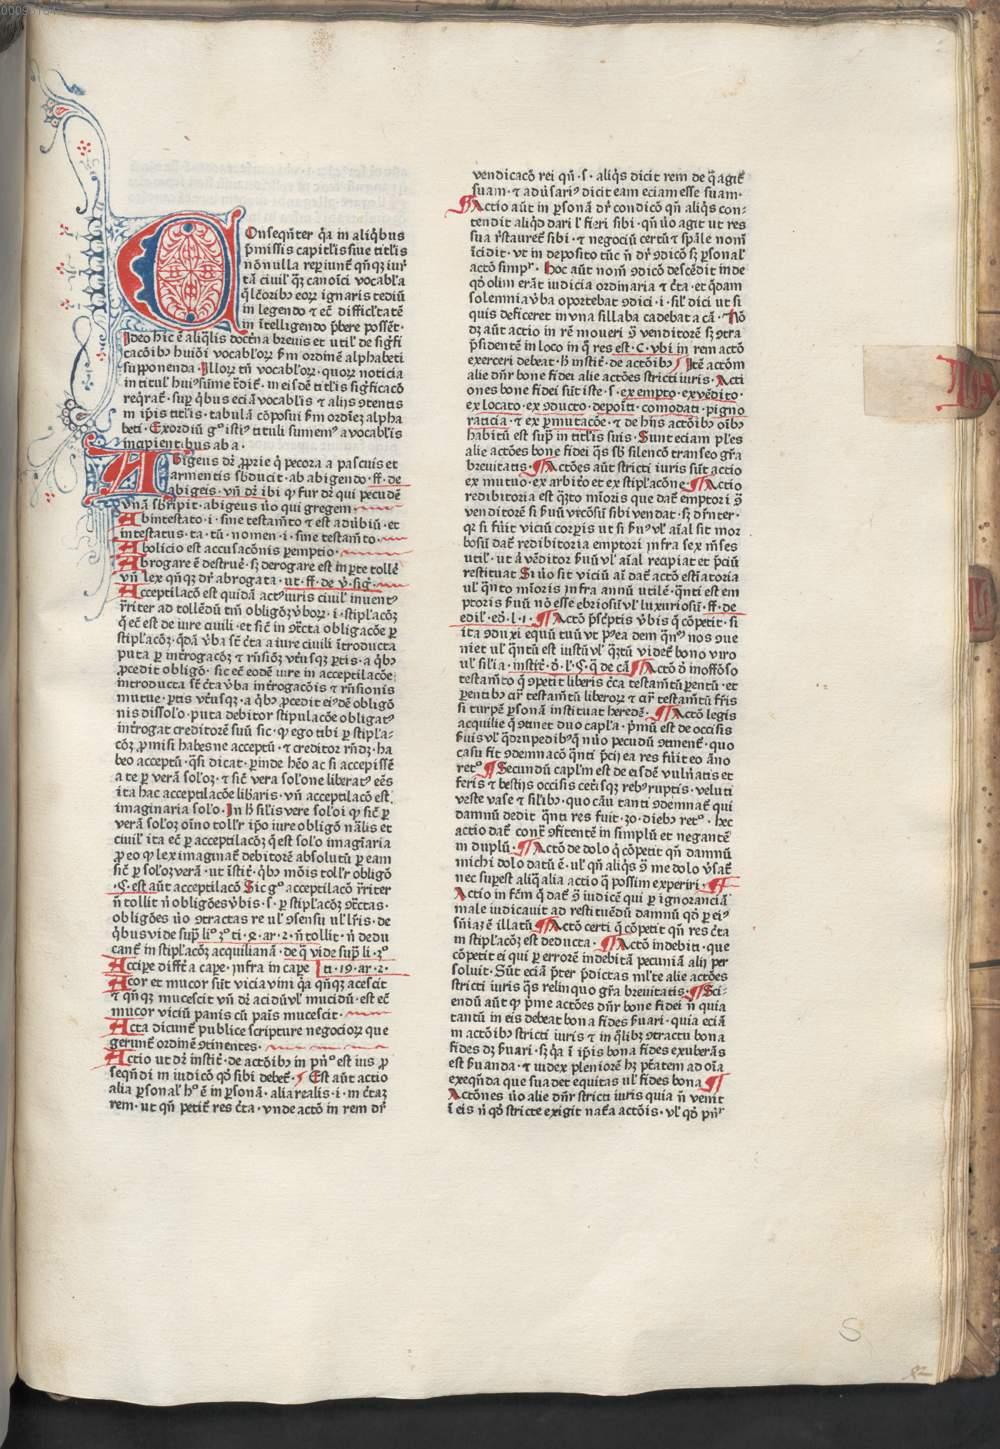 Onseqn̄ter q̄a in aliq̄bus
p̄missis capitl̓is siue titl̓is
nōnulla reꝑiunt̄ qn̄qꝫ iur̄
tā ciuil̓ qꝫ canoīci vocabl̓a
q̄ lc̄oribꝰ eoꝝ ignaris tediū
in legendo ⁊ ec̄ difficl̓tatē
in īteligendo p̄bere possēt·
Ideo hic ē aliq̄lis doctīna breuis et util̓ de sigfi
cacōibꝰ huiōi vocabl̓oꝝ ẜm ordinē alphabeti
supponenda· Illoꝝ tn̄ vocabl̓oꝝ· quoꝝ noticia
in titul̓ huiꝰ sūme r̄dit̄· in eisdē titl̓is sigficacō
reqr̄at̄· suꝑ q̄bus eciā vocabl̓is ⁊ alijs ꝯtentis
m ip̄is titl̓is· tabulā cōposui ẜm ordīez alpha
beti· Exordiū gͦ istiꝰ tituli sumemꝰ a vocabl̓is
incipientibus ab a·
Abigeus dr̄ ꝓprie q̄ pecora a pascuis et
armentis sb̄ducit· ab abigendo· ff· de
abigeis· vn̄ dr̄ ibi ꝙ fur dr̄ qui pecudē
vnā sb̄ripit· abigeus ūo qui gregem·
Abintestato· i· sine testam̄to ⁊ est adūbiū· et
intestatus· ta· tū· nomen· i· sine testam̄to·
Abolicio est accusacōnis ꝑemptio·
Abrogare ē destruē· sꝫ derogare est in ꝑte tollē
vn̄ lex qn̄qꝫ dr̄ abrogata· ut· ff· de v̄· sig·
Acceptilacō est quidā actꝰ iuris ciuil̓ inuentꝰ
r̄riter ad tollēdū tm̄ obligōz v̄boꝝ· i· stipl̓acōꝫ
q̄ ec̄ est de iure ciuili· et sic̄ in ꝯrc̄ta obligacōe ꝑ
stipl̓acōꝫ· q̄dā v̄ba sē c̄ta a iure ciuili ītroducta
puta ꝑ int̄rogacōꝫ ⁊ rn̄siōꝫ vt̄usqꝫ ꝑtis· a q̄bꝰ
ꝓcedit obligō· sic ec̄ eodē iure in acceptilacōe
introducta sē c̄ta v̄ba int̄rogacōis ⁊ rn̄sionis
mutue· ꝑtis vt̄usqꝫ· a q̄bꝰ ꝓcedit eiꝰdē obligō
nis dissol̓o· puta debitor stipulacōe obligatꝰ
int̄rogat creditorē suū sic· ꝙ ego tibi ꝑ stipl̓a-
cōꝫ ꝓmisi habes ne acceptū· ⁊ creditor rn̄dꝫ· ha
beo acceptū· q̄si dicat· ꝑinde hēo ac si accepissē
a te ꝑ verā sol̓oꝫ· ⁊ sic̄ vera sol̓one liberatꝰ eēs
ita hac acceptilacōe lib̄aris· vn̄ acceptilacō est
imaginaria sol̓o· In h̄ sil̓is vere sol̓oi ꝙ sic̄ ꝑ
verā sol̓oꝫ oīno tollr̄ ip̄o iure obligō nāl̓is et
ciuil̓ ita ec̄ ꝑ acceptilacōꝫ q̄ est sol̓o imagīaria
ꝓ eo ꝙ lex imaginat̄ debitorē absolutū ꝑ eam
sic̄ ꝑ sol̓oꝫ verā· ut īstit̄· q̄bꝰ mōis tollr̄ obligō
·C· est aūt acceptilacō Sic gͦ acceptilacō r̄riter
n̄ tollit n̄ obligōes v̄bis· s· ꝑ stipl̓acōꝫ ꝯrctas·
obligōes ūo ꝯtractas re ul̓ ꝯsensu ul̓ lr̄is· de
q̄bus vide sup̄ li· 2· ti· 9· ar· 2· n̄ tollit· n̄ dedu
cant̄ in stipl̓acōꝫ acquilianā· de q̄ vide sup̄ li· 2
Accipe differ̄t a cape· infra in cape ti· 19· ar· 2·
Acor et mucor sūt vicia vini q̄a qn̄qꝫ acescit
⁊ qn̄qꝫ mucescit vn̄ dr̄ acidū ul̓ mucidū· est ec̄
mucor viciū panis cū pais mucescit·
Acta dicunt̄ publice scripture negocioꝝ que
gerunt̄ ordinē ꝯtinentes·
Actio ut dꝫ instit̄· de actōibꝰ in pn̄ͦ est ius ꝓ
seqn̄di m iudicō qͦ sibi debet̄· Est aūt actio
alia ꝑsonal̓ hͦ ē in ꝑsonā· alia realis· i· m c̄taꝫ
rem· ut qn̄ petit̄ res c̄ta· vnde actō in rem dr̄
vendicacō rei qn̄· s· aliq̄s dicit rem de q̄ agit̄
suam· ⁊ adūsariꝰ dicit eam eciam esse suam·
Actio aūt in ꝑsonā dr̄ condicō qn̄ aliq̄s con-
tendit aliq̄d dari l̓ fieri sibi· qn̄ ūo agit ut res
sua r̄stauret̄ sibi· ⁊ negociū certū ⁊ spāle nom̄
īcidit· vt in deposito tūc n̄ dr̄ ꝯdicō sꝫ ꝑsonal̓
actō simpr̄· Hoc aūt nom̄ ꝯdicō descēdit inde
qͦ olim erāt iudicia ordinaria ⁊ c̄ta· et q̄dam
solemnia v̄ba oportebat ꝯdici· i· sil̓ dici ut si
quis deficeret in vna sillaba cadebat a cā· Nō
dꝫ aūt actio in rē moueri ꝯ venditorē sꝫ ꝯtra
p̄sidentē in loco in q̄ res est· C· vbi in rem actō
exerceri debeat· h̄ instit̄· de actōibꝰ Itē actōm
alie dn̄r bone fidei alie actōes stricti iuris· Acti
ones bone fidei sūt iste· s· ex empto· ex vēdito·
ex locato· ex ꝯducto· depoīti· comodati· pigno
raticia· ⁊ ex ꝑmutacōe· ⁊ de hijs actōibꝰ oībꝰ
habitū est sup̄ in titl̓is suis· Sunt eciam pl̓es
alie actōes bone fidei q̄s sb̄ silencō transeo gr̄a
breuitatis· Actōes aūt stricti iuris sūt actio
ex mutuo· ex arbit̄o et ex stiplacōne· Actio
redibitoria est q̄ꝫto mīoris que dat̄ emptori ꝯ
venditorē si ẜuū vicōsū sibi vendat· sꝫ dr̄nter·
qꝫ si fūit viciū corꝑis ut si ẜuꝰ ul̓ aīal sit mor
bosū dat̄ redibitoria emptori infra sex mēses
util̓· ut ā vēditor ẜuū ul̓ aīal recipiat et p̄ciū
restituat Si ūo sit viciū aī dat̄ actō estiatoria
ul̓ q̄nto mīoris infra annū utilē· q̄nti est em
ptoris ẜuū nō esse ebriosū ul̓ luxuriosū· ff· de
edil̓· eō· l· i· Actō p̄scptis v̄bis q̄ cōpetit· si
ita ꝯduxi equū tuū vt ꝑ ea dem qn̄ꝰ nos ꝯue
niet ul̓ q̄ntū est iustū ul̓ q̄ꝫtū videt̄ bono viro
ul̓ sil̓ia· instit̄· ō· l̓· C· q̄ de cā Actō ō īnoffōso
testam̄to q̄ ꝯpetit liberis c̄ca testam̄tū ꝑentū· et
ꝑentibꝰ cir̄ testam̄tū liberoꝝ ⁊ cir̄ testam̄tū fr̄is
si turpē ꝑsonā instituat heredē· Actō legis
acquilie q̄ ꝯtinet duo capl̓a· p̄mū est de occisis
ẜuis ul̓ q̄drupedibꝰ q̄ nūo pecudū ꝯtinent̄· quo
casu fit ꝯdemnacō q̄nti p̄cij ea res fūit eo āno
ret̄ͦ Secundū capl̓m est de eisdē vuln̄atis et
feris ⁊ bestijs occisis cet̄isqꝫ rebꝰ ruptis· veluti
veste vase ⁊ sil̓ibꝰ· quo cāu tanti ꝯdemnat̄ qui
damnū dedit qn̄ti res fuit· 30· diebꝰ ret̄ͦ· hec
actio dat̄ contͣ ꝯfitentē in simplū et negantē
in duplū· Actō de dolo q̄ cōpetit qn̄ damnū
michi dolo datū ē· ul̓ qn̄ aliq̄s ꝯ me dolo v̄sat̄
nec suꝑest aliq̄ alia actio q̄ possim experiri·
Actio in fcm̄ q̄ dat̄ ꝯ iudicē qui ꝑ ignoranciā
male iudicauit ad restituēdū damnū qͦ ꝑ eiꝰ
sn̄iaꝫ ē illatū Actō certi q̄ cōpetit qn̄ res c̄ta
m stipl̓acōꝫ est deducta· Actō indebiti· que
cōpetit ei qui ꝑ errorē indebitā pecuniā alij per
soluit· Sūt eciā p̄ter p̄dictas ml̓te alie actōes
stricti iuris q̄s relinquo gr̄a breuitatis· Sci-
endū aūt ꝙ p̄me actōes dn̄r bone fidei n̄ quia
tantū in eis debeat bona fides ẜuari· quia eciā
m actōibꝰ stricti iuris ⁊ in q̄libꝫ ꝯtractu bona
fides dꝫ ẜuari· sꝫ q̄a ī ip̄is bona fides exuberās
est ẜuanda· ⁊ iudex pleniorē hꝫ pt̄atem ad oīa
exeqn̄da que suadet equitas ul̓ fides bona
Actōnes ūo alie dn̄r stricti iuris quia n̄ venit
ī eis n̄ qͦ stricte exigit nat̄a actōis· ul̓ qͦ pn̄r